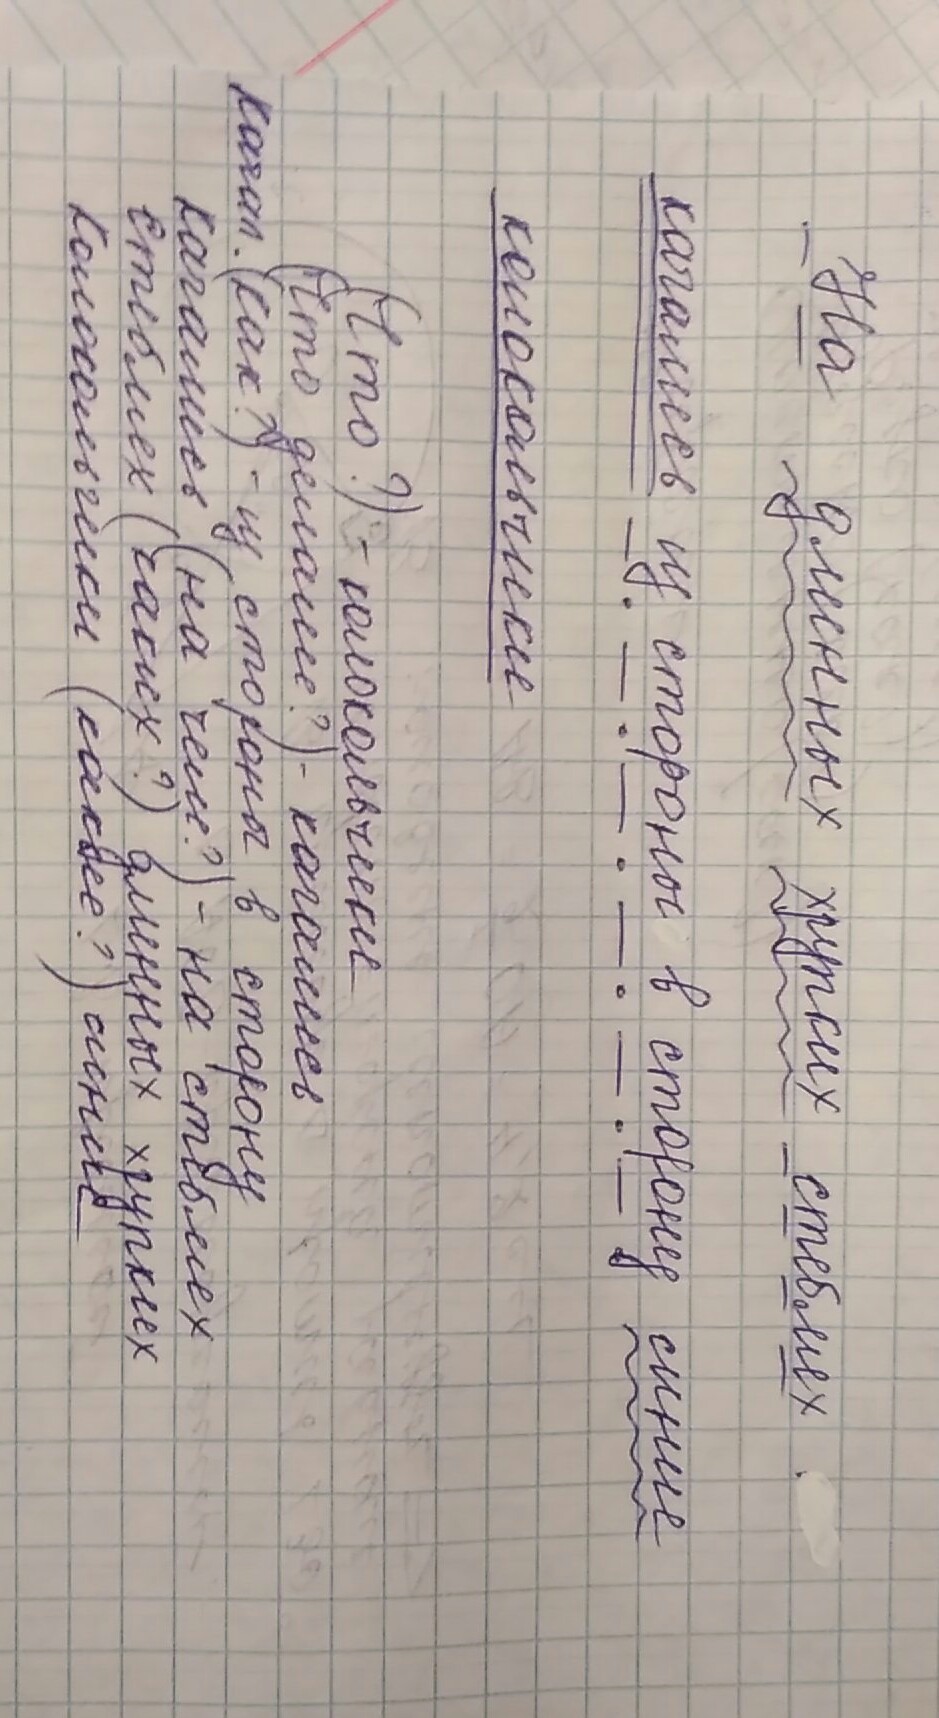 На длинных хрупких стеблях
качались из стороны в сторону синие
колокольчики
(Что?) - колокольчики
(Что делали?) - качались
Качал. (как?) - из стороны в сторону
Качались (на чем?) - на стеблях
Стеблях (каких?) длинных хрупких
Колокольчики (какие?) синие